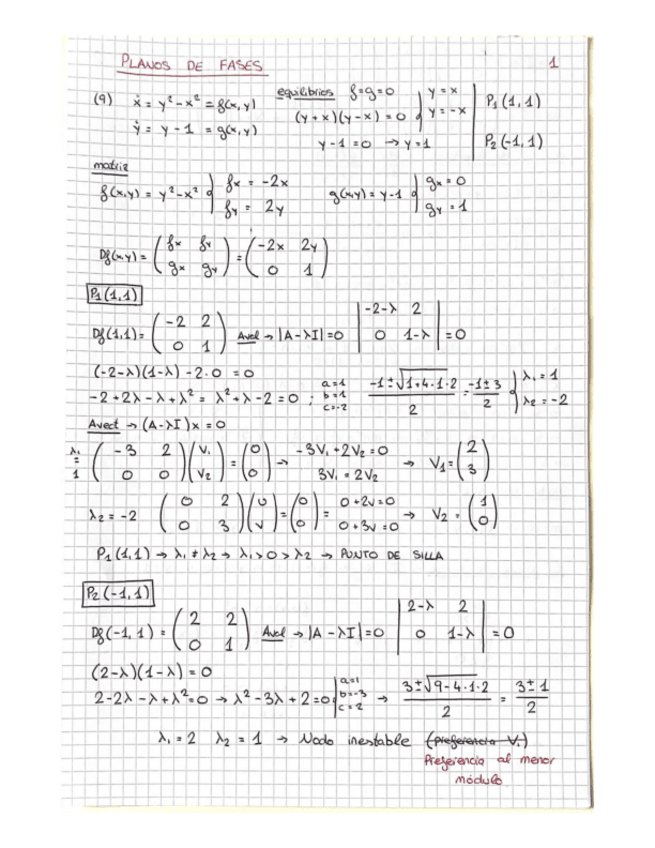 PLANOS DE FASES 1
(9) ẋ = y² - x² = f(x,y) equilibrios f=g=0 { y = x P₁(1,1)
(y+x)(y-x) = 0 { y = -x
ẏ = y - 1 = g(x,y) y - 1 = 0 → y = 1 P₂(-1,1)
matriz
f(x,y) = y² - x² { fx = -2x g(x,y) = y-1 { gx = 0
fy = 2y gy = 1
Df(x,y) = ( fx fy ; gx gy ) = ( -2x 2y ; 0 1 )
P₁(1,1)
Df(1,1) = ( -2 2 ; 0 1 ) Avel → |A-λI| = 0 | -2-λ 2 ; 0 1-λ | = 0
(-2-λ)(1-λ) - 2·0 = 0
-2+2λ-λ+λ² = λ²+λ-2 = 0 ; a=1 b=1 c=-2 (-1±√(1+4·1·2))/2 = (-1±3)/2 { λ₁ = 1 λ₂ = -2
Avect → (A-λI)x = 0
λ₁ = 1 ( -3 2 ; 0 0 )( V₁ ; V₂ ) = ( 0 ; 0 ) → -3V₁+2V₂=0 3V₁ = 2V₂ → V₁ = ( 2 ; 3 )
λ₂ = -2 ( 0 2 ; 0 3 )( u ; v ) = ( 0 ; 0 ) = 0+2v=0 0+3v=0 → V₂ = ( 1 ; 0 )
P₁(1,1) → λ₁ ≠ λ₂ → λ₁ > 0 > λ₂ → PUNTO DE SILLA
P₂(-1,1)
Df(-1,1) = ( 2 2 ; 0 1 ) Avel → |A-λI| = 0 | 2-λ 2 ; 0 1-λ | = 0
(2-λ)(1-λ) = 0
2-2λ-λ+λ²=0 → λ²-3λ+2=0 { a=1 b=-3 c=2 → (3±√(9-4·1·2))/2 = (3±1)/2
λ₁ = 2 λ₂ = 1 → Nodo inestable (preferencia V₁)
Preferencia al menor
módulo